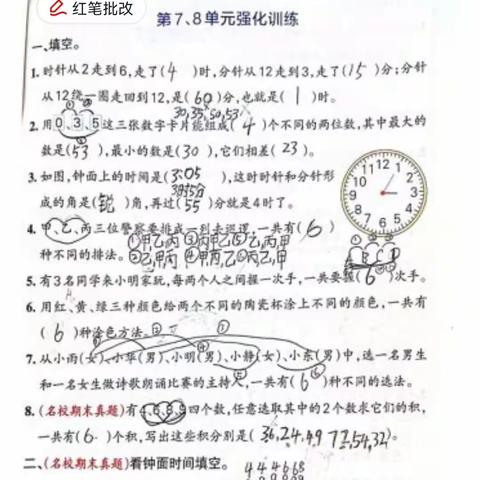 红笔批改
第7、8单元强化训练
一、填空。
1. 时针从2走到6,走了(4)时,分针从12走到3,走了(15)分;分针
从12绕一圈走回到12,是(60)分,也就是(1)时。
30,35,50,53
2. 用0、3、5这三张数字卡片能组成(4)个不同的两位数,其中最大的
数是(53),最小的数是(30),它们相差(23)。
3. 如图,钟面上的时间是(3:05),这时时针和分针形
3时5分
成的角是(锐)角,再过(55)分就是4时了。
4. 甲、乙、丙三位警察要排成一列去巡逻,一共有(6)
种不同的排法。①甲乙丙 ③丙甲乙 ⑤乙丙甲
②乙甲丙 ④甲丙乙 ⑥丙乙甲
5. 有3名同学来小明家玩,每两个人之间握一次手,一共要握(6)次手。
6. 用红、黄、绿三种颜色给两个不同的陶瓷杯涂上不同的颜色,一共有
(6)种涂色方法。
7. 从小雨(女)、小华(男)、小明(男)、小静(女)、小东(男)中,选一名男生
和一名女生做诗歌朗诵比赛的主持人,一共有(6)种不同的选法。
8. (名校期末真题)有4、6、8、9四个数,任意选取其中的2个数求它们的积,
一共有(6)个积,写出这些积分别是(36,24,49 72,54,32)。
二、(名校期末真题)看钟面时间填空。